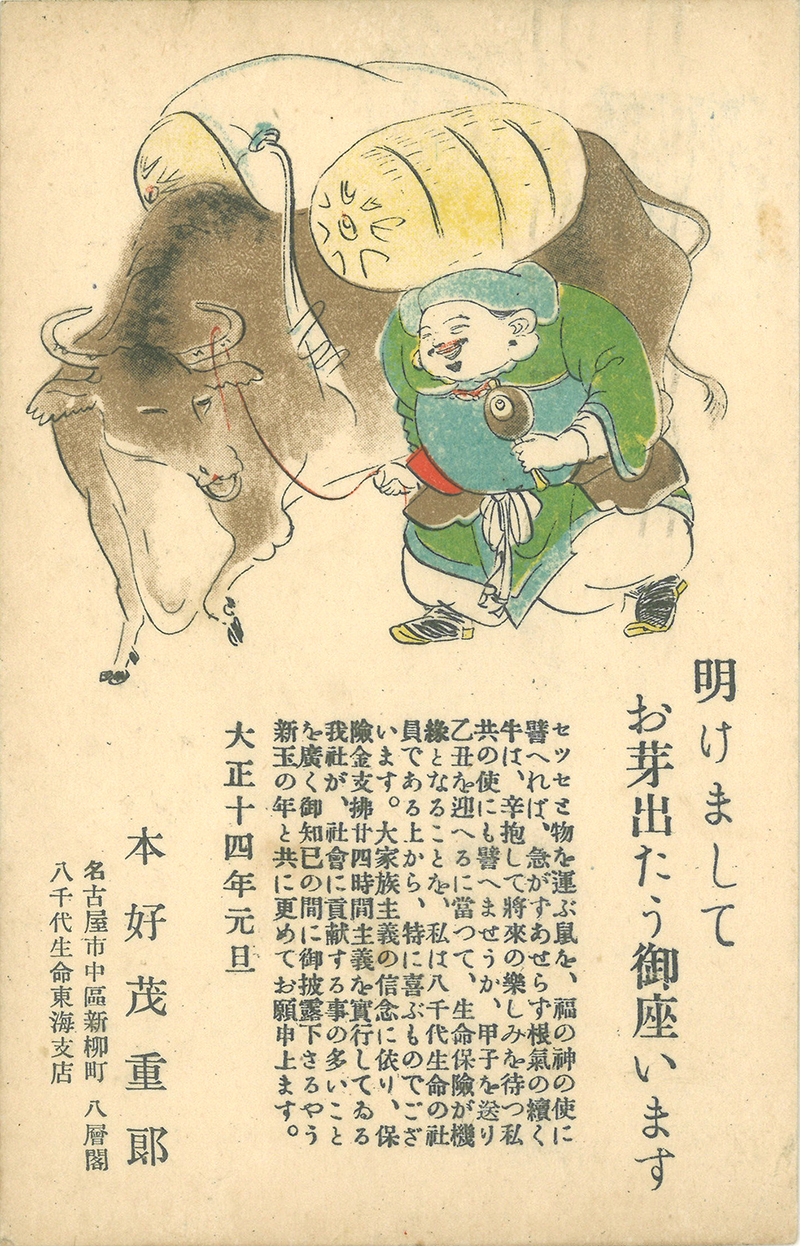 明けまして
お芽出たう御座います
セツセと物を運ぶ鼠を、福の神の使に
譬へれば、急がずあせらず根氣の續く
牛は、辛抱して將來の樂しみを待つ私
共の使にも譬へませうか、甲子を送り
乙丑を迎へるに當つて、生命保險が機
緣となることを、私は八千代生命の社
員である上から、特に喜ぶものでござ
います。大家族主義の信念に依り、保
險金支拂廿四時間主義を實行してゐる
我社が、社會に貢献する事の多いこと
を廣く御知已の間に御披露下さるやう
新玉の年と共に更めてお願申上ます。
大正十四年元旦
本好茂重郎
名古屋市中區新柳町 八層閣
八千代生命東海支店